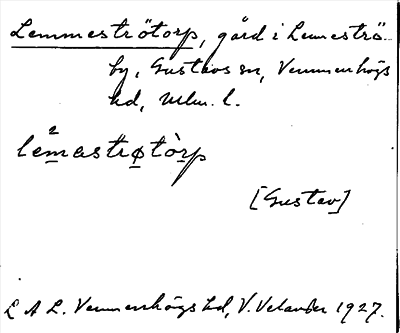 Lemmeströtorp, gård i Lemeströ
by, Gustavs sn, Vemmenhögs
hd, Mlm. l.
le²mastrøtòrp
[Gustav]
L A L. Vemmenhögs hd, V. Velander 1927.